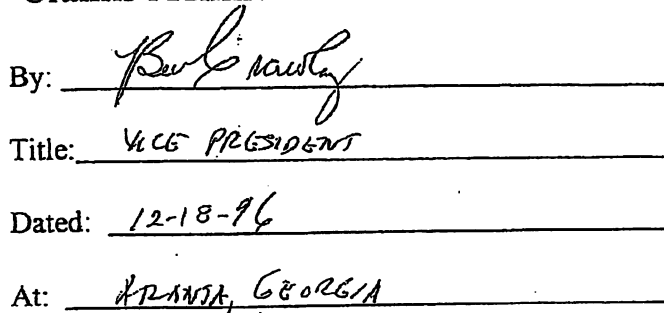 By: Ben Crawley
Title: VICE PRESIDENT
Dated: 12-18-96
At: ATLANTA, GEORGIA